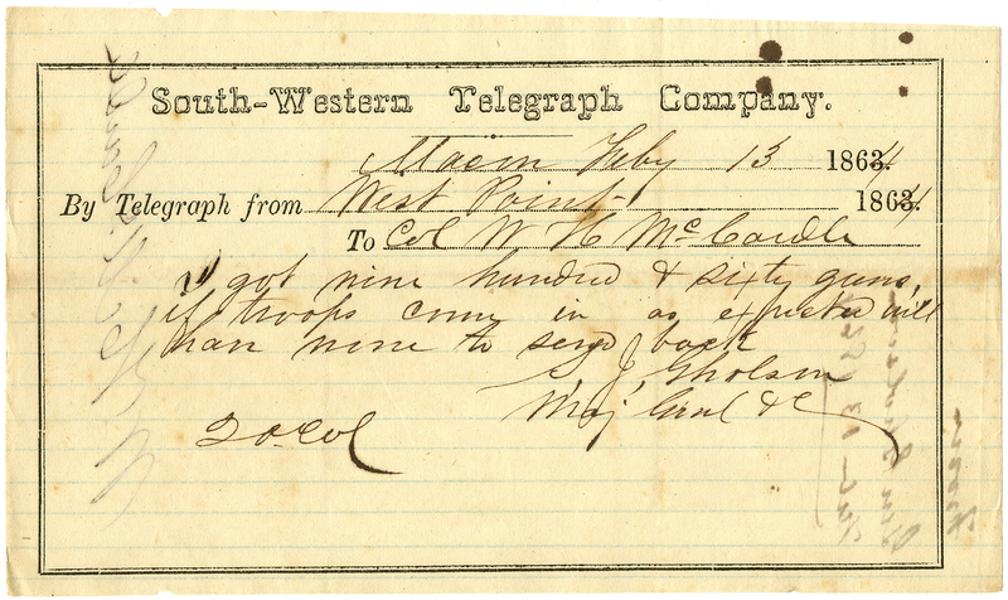 South-Western Telegraph Company.
Macon Feby 13 18634
By Telegraph from West Point 18634
To Col W H McCardle
I got nine hundred & sixty guns,
if troops come in as expected will
have none to send back
S, J, Gholson
Maj Genl &C
20 Col